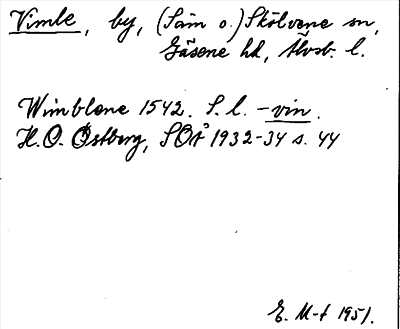 Vimle, by, (Säm o.) Skölvene sn,
Gäsene hd, Älvsb. l.
Wimblene 1542. S. l. -vin.
H. O. Östberg, SOÅ 1932-34 s. 44
E. M-t 1951.